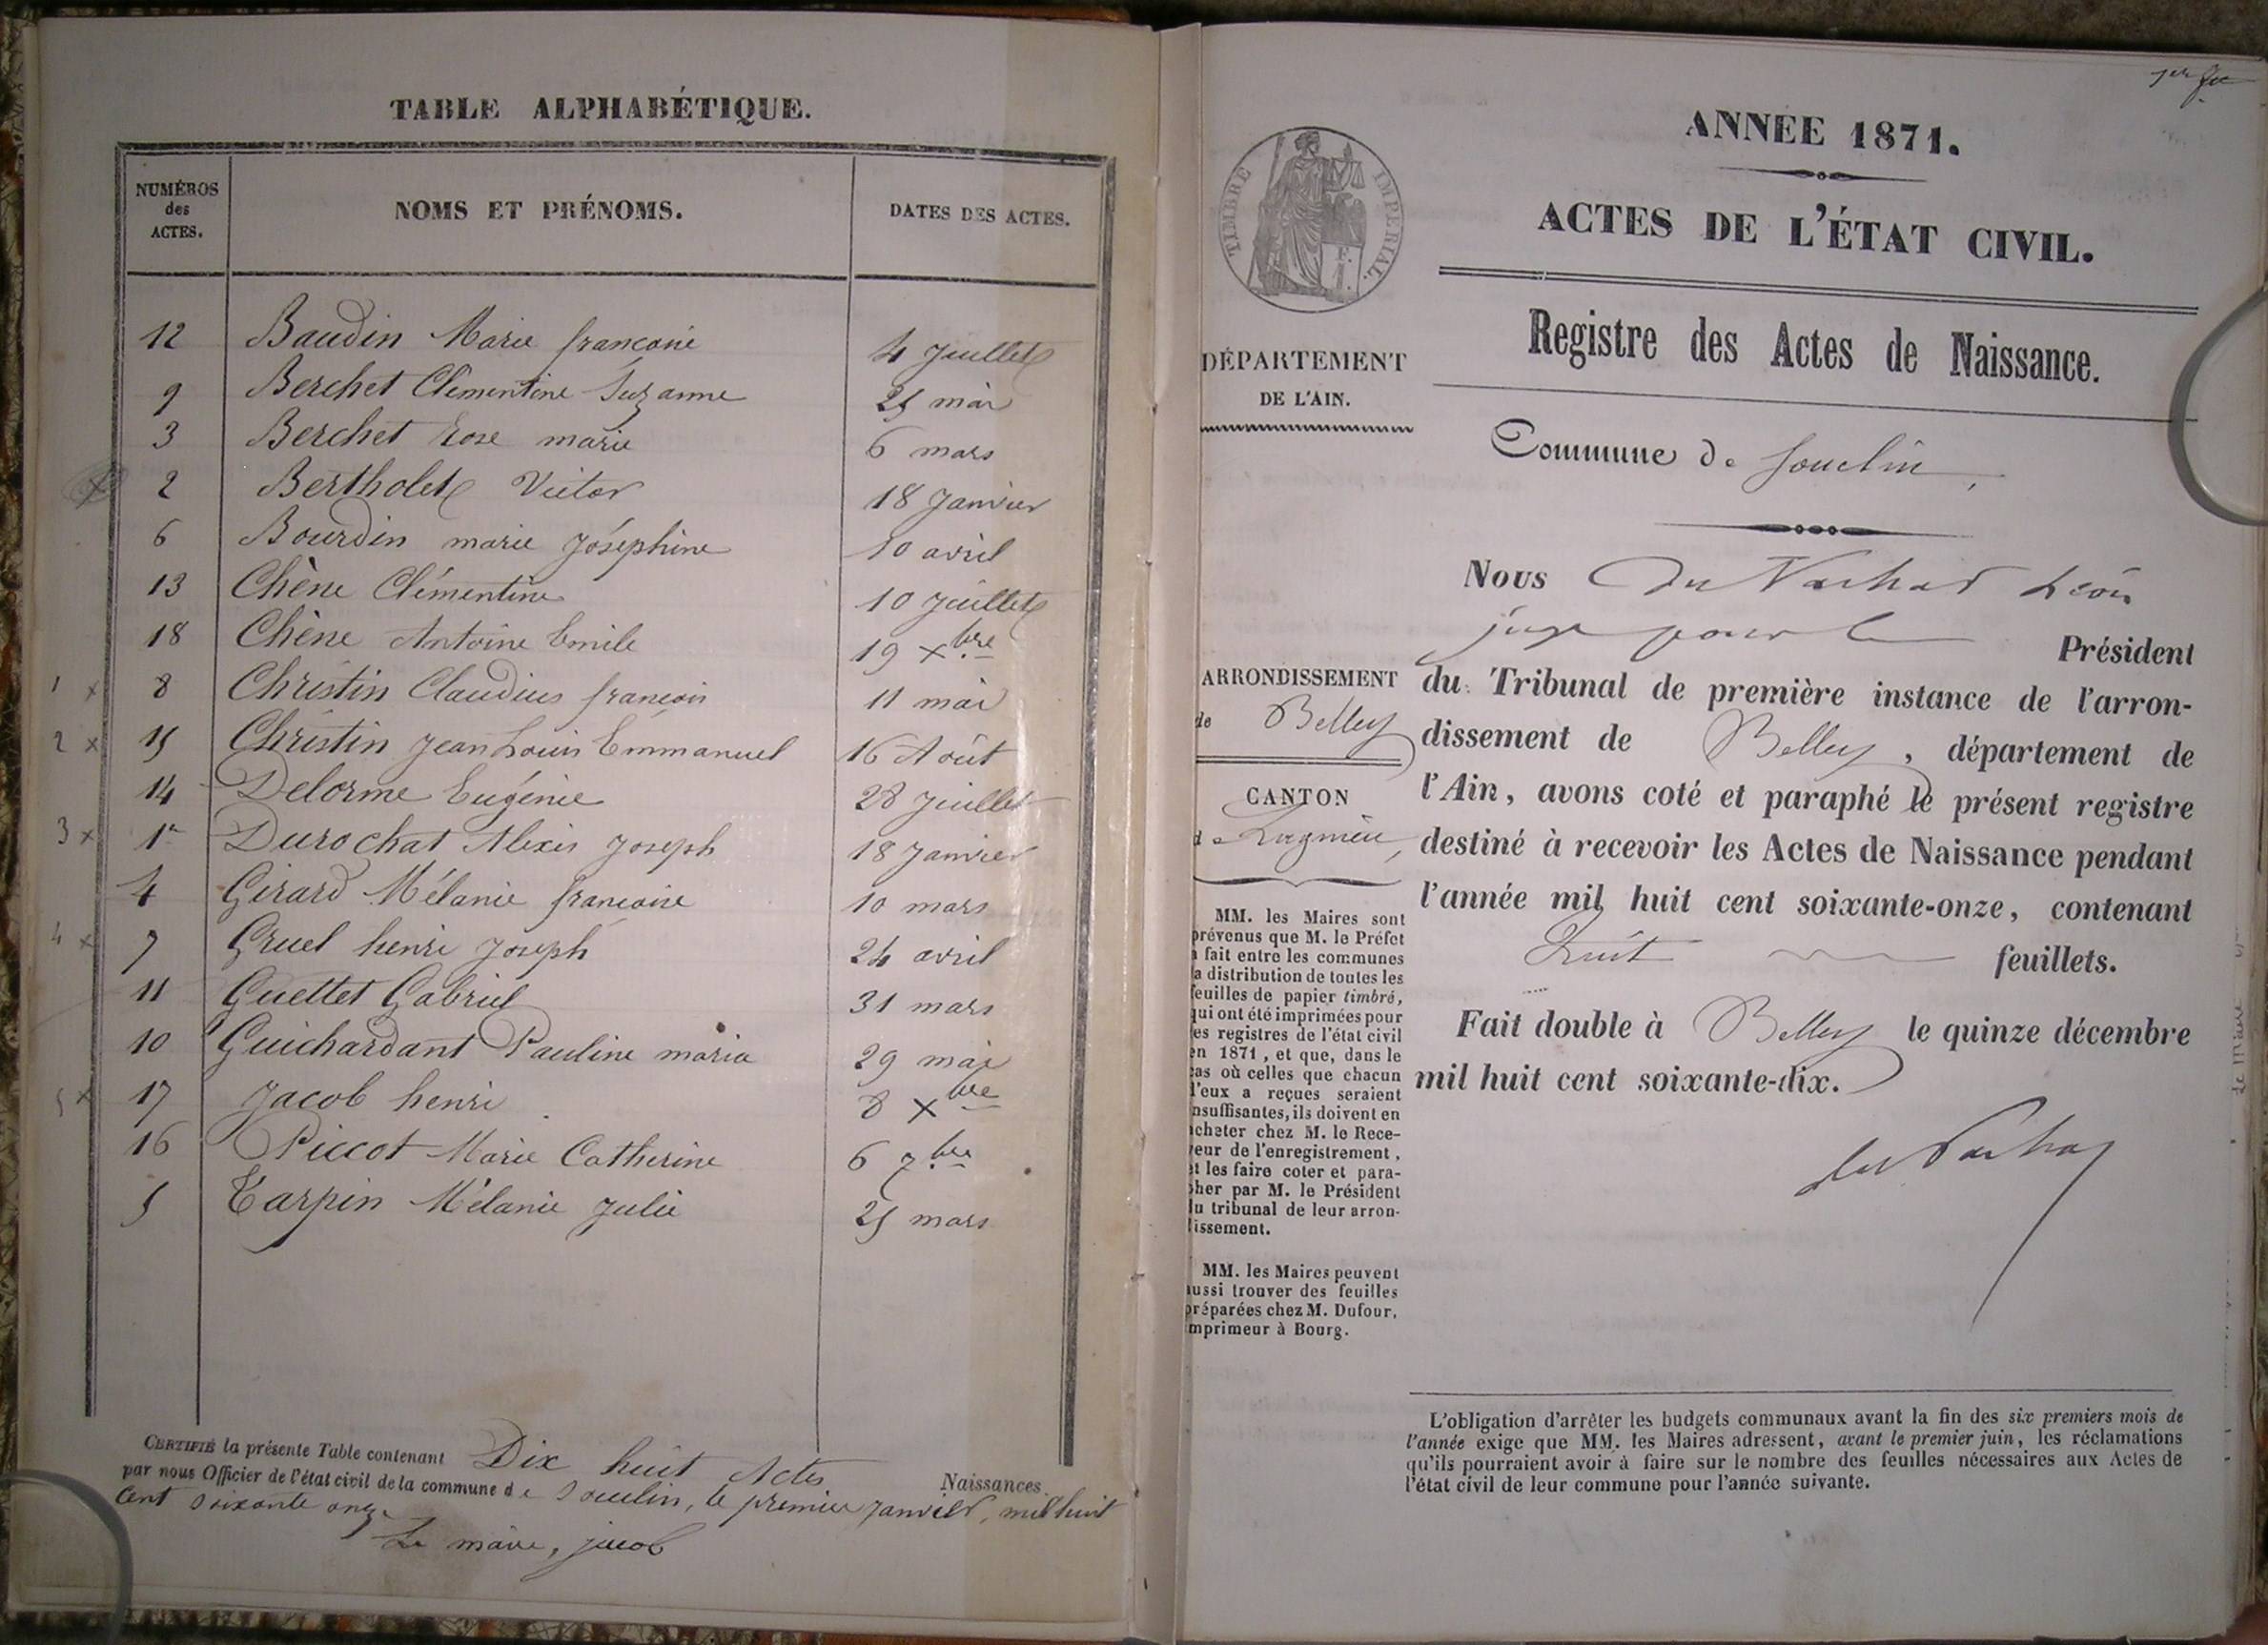 TABLE ALPHABÉTIQUE.
NUMÉROS des ACTES.
NOMS ET PRÉNOMS.
DATES DES ACTES.
12 Baudin Marie françoise 4 Juillet
9 Berchet Clémentine Suzanne 25 mai
3 Berchet Rose marie 6 mars
2 Bertholet Victor 18 Janvier
6 Bourdin marie Joséphine 10 avril
13 Chêne Clémentine 10 Juillet
18 Chêne Antoine Emile 19 Xbre
1 x 8 Christin Claudius françois 11 mai
2 x 15 Christin Jean Louis Emmanuel 16 Août
14 Delorme Eugénie 28 Juillet
3 x 1er Durochat Alexis Joseph 18 Janvier
4 Girard Mélanie françoise 10 mars
4 x 7 Gruel henri Joseph 24 avril
11 Guettet Gabriel 31 mars
10 Guichardant Pauline maria 29 mai
5 x 17 Jacob henri 8 Xbre
16 Piccot Marie Catherine 6 7bre
5 Tarpin Mélanie Julie 25 mars
CERTIFIÉ la présente Table contenant Dix huit Actes Naissances.
par nous Officier de l'état civil de la commune de Souclin, le premier Janvier, mil huit
Cent soixante onze
Le maire, jacob
1er
ANNÉE 1871.
TIMBRE IMPÉRIAL.
ACTES DE L'ÉTAT CIVIL.
Registre des Actes de Naissance.
DÉPARTEMENT
DE L'AIN.
Commune de Souclin,
Nous Du Vachat Léon
juge pour le Président
ARRONDISSEMENT
de Belley
CANTON
de Lagnieu,
du Tribunal de première instance de l'arron-
dissement de Belley, département de
l'Ain, avons coté et paraphé le présent registre
destiné à recevoir les Actes de Naissance pendant
l'année mil huit cent soixante-onze, contenant
huit feuillets.
Fait double à Belley le quinze décembre
mil huit cent soixante-dix.
du Vachat
MM. les Maires sont
prévenus que M. le Préfet
a fait entre les communes
la distribution de toutes les
feuilles de papier timbré,
qui ont été imprimées pour
les registres de l'état civil
en 1871, et que, dans le
cas où celles que chacun
d'eux a reçues seraient
insuffisantes, ils doivent en
acheter chez M. le Rece-
veur de l'enregistrement,
et les faire coter et para-
pher par M. le Président
du tribunal de leur arron-
dissement.
MM. les Maires peuvent
aussi trouver des feuilles
préparées chez M. Dufour,
imprimeur à Bourg.
L'obligation d'arrêter les budgets communaux avant la fin des six premiers mois de
l'année exige que MM. les Maires adressent, avant le premier juin, les réclamations
qu'ils pourraient avoir à faire sur le nombre des feuilles nécessaires aux Actes de
l'état civil de leur commune pour l'année suivante.